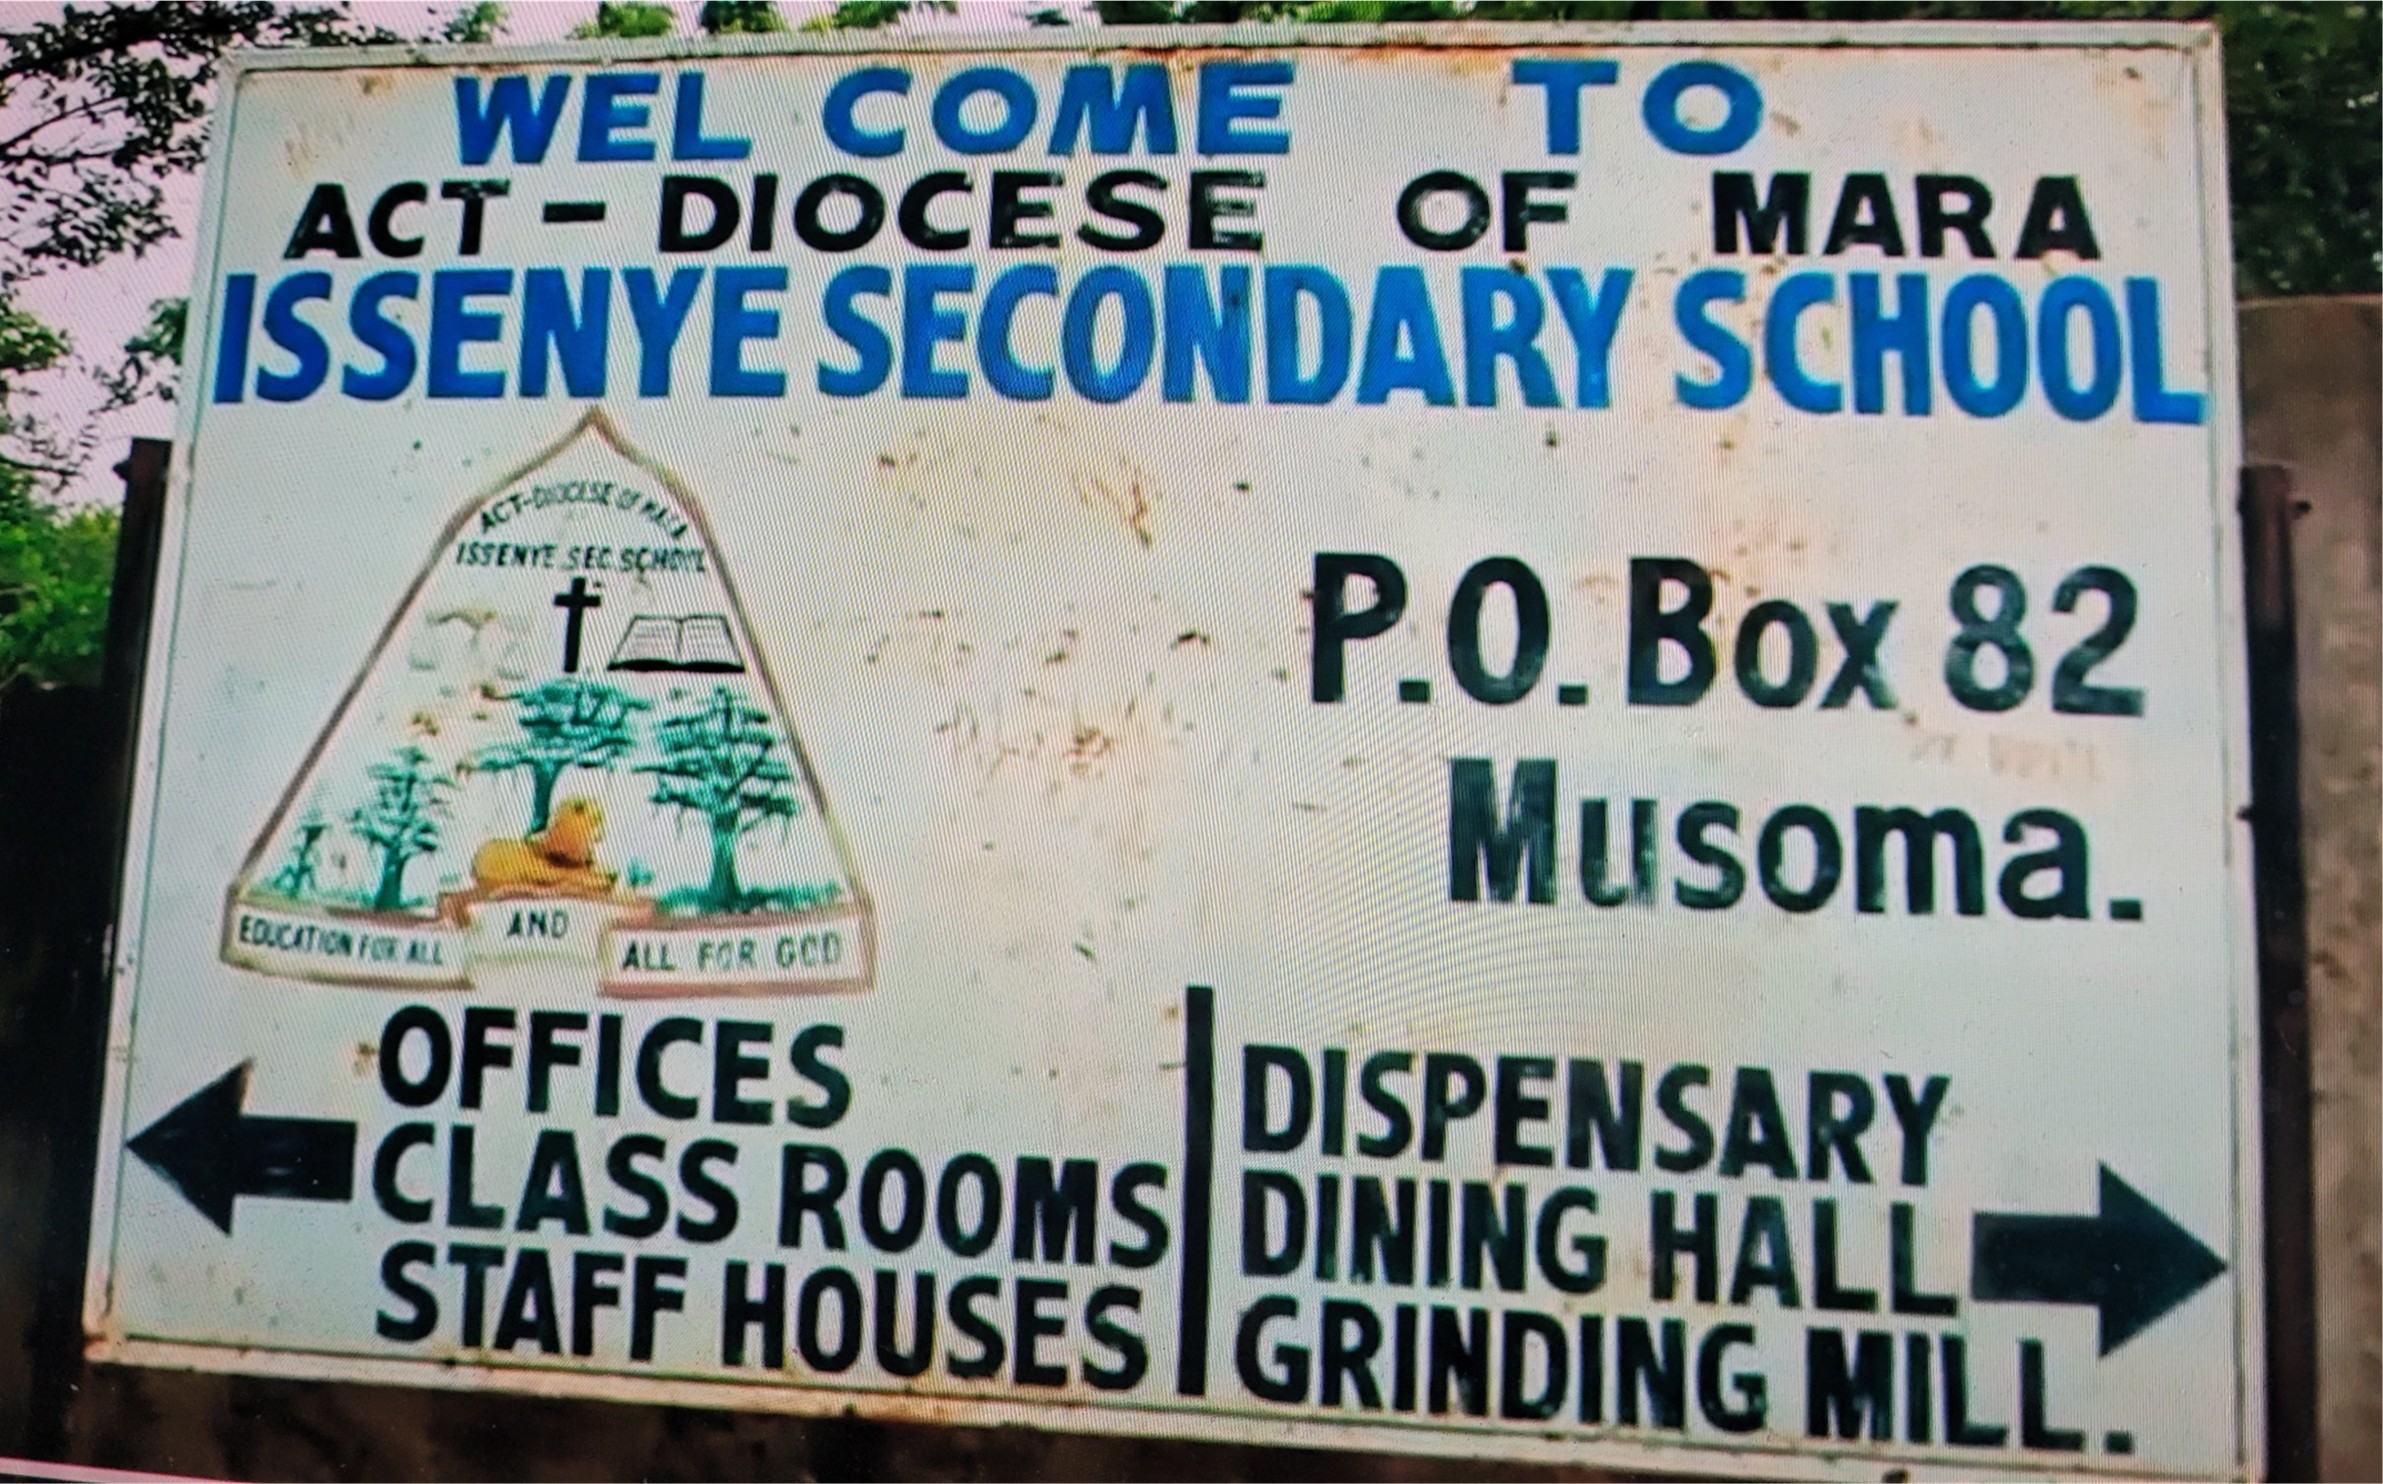 WEL COME TO
ACT - DIOCESE OF MARA
ISSENYE SECONDARY SCHOOL
ACT-DIOCESE OF MARA
ISSENYE SEC. SCHOOL
EDUCATION FOR ALL
AND
ALL FOR GOD
P.O. Box 82
Musoma.
OFFICES
CLASS ROOMS
STAFF HOUSES
DISPENSARY
DINING HALL
GRINDING MILL.